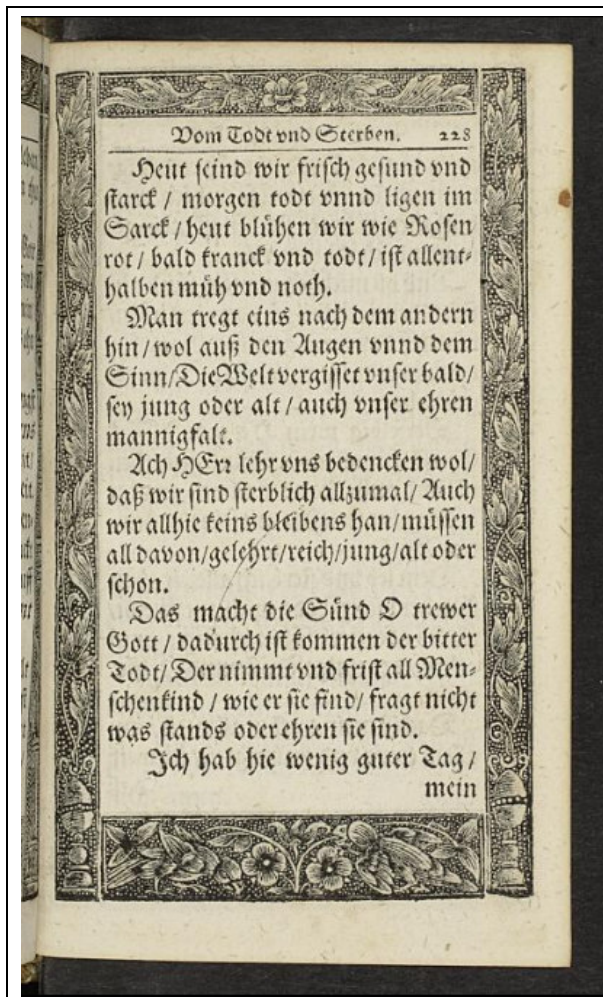 Vom Todt vnd Sterben. 228
Heut seind wir frisch gesund vnd
starck / morgen todt vnnd ligen im
Sarck / heut blühen wir wie Rosen
rot / bald kranck vnd todt / ist allent-
halben müh vnd noth.
Man tregt eins nach dem andern
hin / wol auß den Augen vnnd dem
Sinn / Die Welt vergisset vnser bald /
sey jung oder alt / auch vnser ehren
mannigfalt.
Ach HErr lehr vns bedencken wol /
daß wir sind sterblich allzumal / Auch
wir allhie keins bleibens han / müssen
all davon / gelehrt / reich / jung / alt oder
schon.
Das macht die Sünd O trewer
Gott / dadurch ist kommen der bitter
Todt / Der nimmt vnd frist all Men-
schenkind / wie er sie find / fragt nicht
was stands oder ehren sie sind.
Ich hab hie wenig guter Tag /
mein